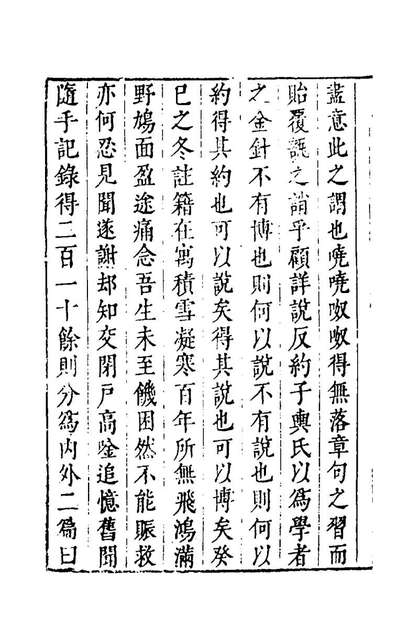 盡意此之謂也嘵嘵呶呶得無落章句之習而
貽覆瓿之誚乎顧詳說反約子輿氏以爲學者
之金針不有博也則何以說不有說也則何以
約得其約也可以說矣得其說也可以博矣癸
巳之冬註籍在寓積雪凝寒百年所無飛鴻滿
野鳩面盈途痛念吾生未至饑困然不能賑救
亦何忍見聞遂謝却知交閉戶高唫追憶舊聞
隨手記錄得二百一十餘則分爲內外二篇曰